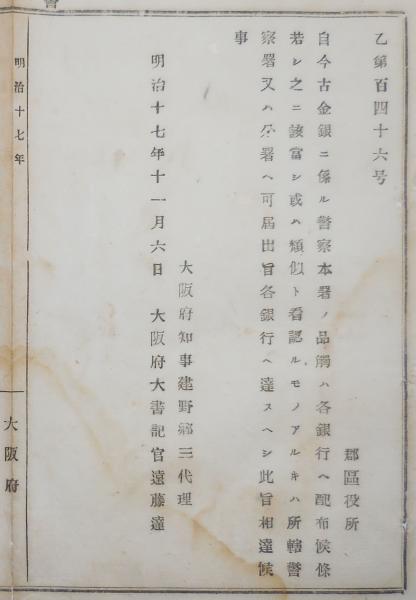 乙第百四十六号
郡區役所
自今古金銀ニ係ル警察本署ノ品觸ハ各銀行ヘ配布候條
若シ之ニ該當シ或ハ類似ト看認ルモノアルキハ所轄警
察署又ハ分署ヘ可届出旨各銀行ヘ達スヘシ此旨相達候
事
大阪府知事建野郷三代理
明治十七年十一月六日 大阪府大書記官遠藤達
明治十七年
大阪府